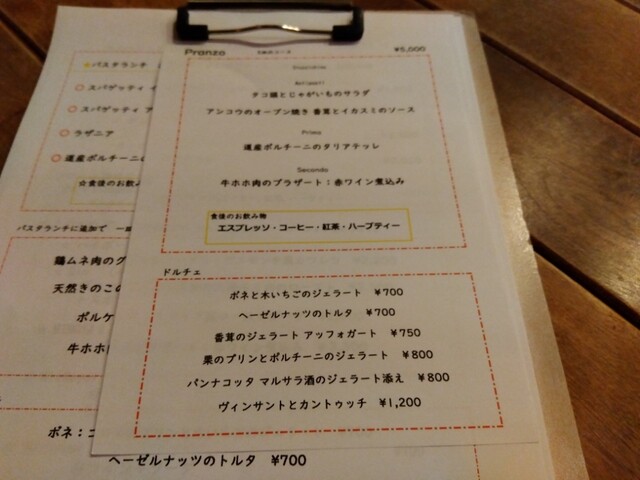 Pranzo ¥5,000
Stuzzichino
Antipasti
タコ頭とじゃがいものサラダ
アンコウのオーブン焼き 香茸とイカスミのソース
Primo
道産ポルチーニのタリアテッレ
Secondo
牛ホホ肉のブラザート：赤ワイン煮込み
食後のお飲み物
エスプレッソ・コーヒー・紅茶・ハーブティー
ドルチェ
ボネと木いちごのジェラート ¥700
ヘーゼルナッツのトルタ ¥700
香茸のジェラート アッフォガート ¥750
栗のプリンとポルチーニのジェラート ¥800
パンナコッタ マルサラ酒のジェラート添え ¥800
ヴィンサントとカントゥッチ ¥1,200
★パスタランチ
○スパゲッティ イ
○スパゲッティ ア
○ラザニア
○道産ポルチーニの
☆食後のお飲み
パスタランチに追加で 一
鶏ムネ肉のグ
天然きのこの
ポルケ
牛ホホ
ボネ：コ
ヘーゼルナッツのトルタ ¥700